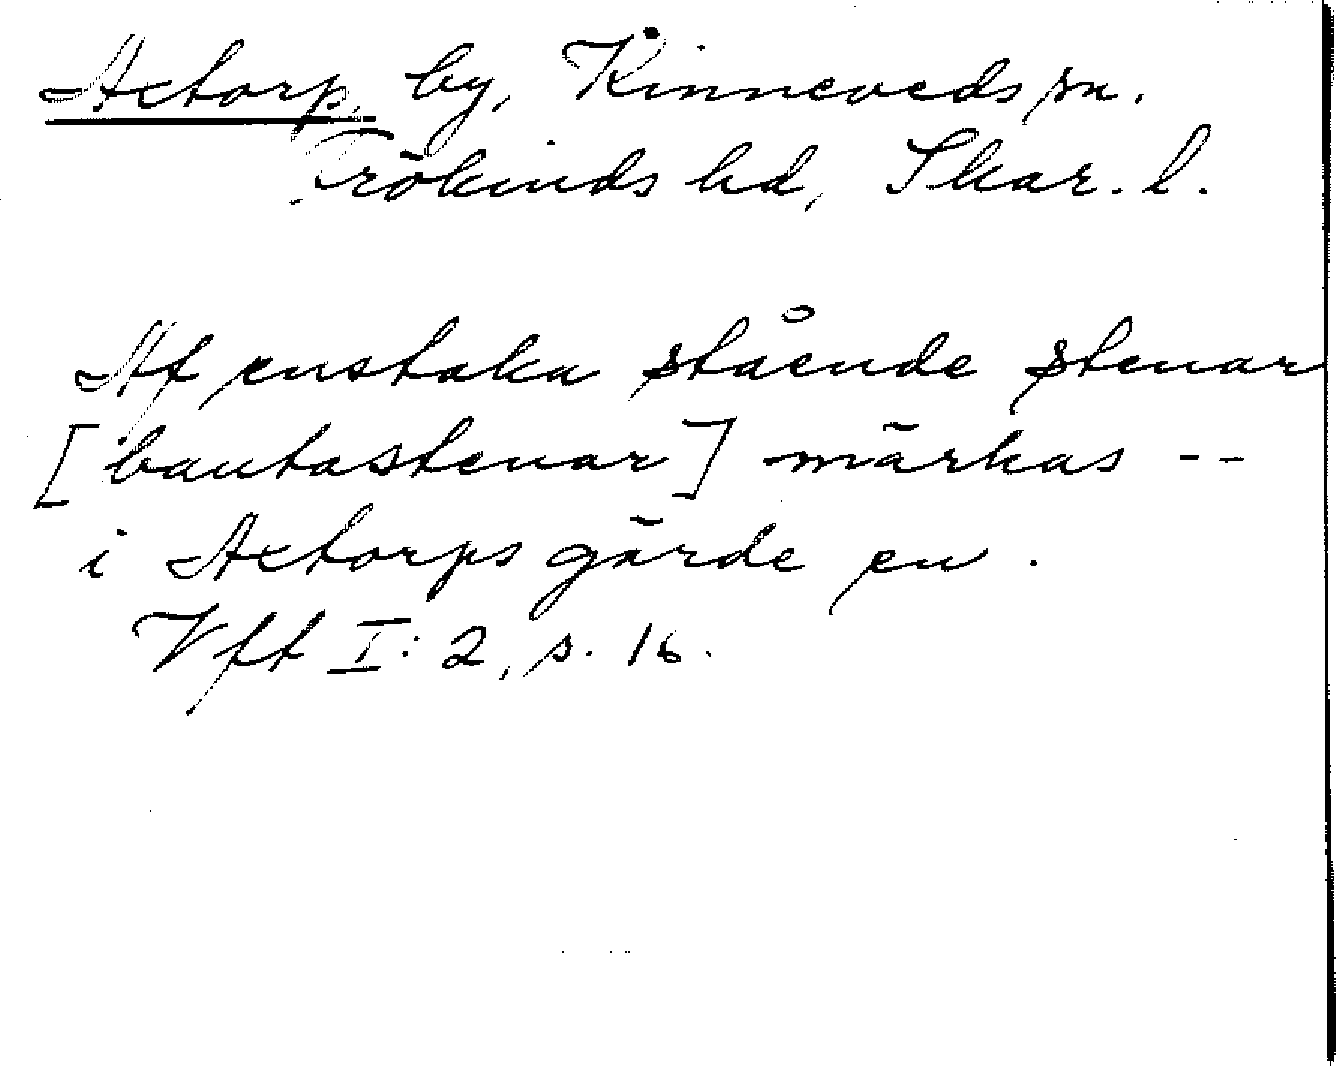 Axtorp, by, Kinneveds sn.
Frökinds hd, Skar. l.
Af enstaka stående stenar
[bautastenar] märkas --
i Axtorps gärde en.
Vft I:2, s. 16.